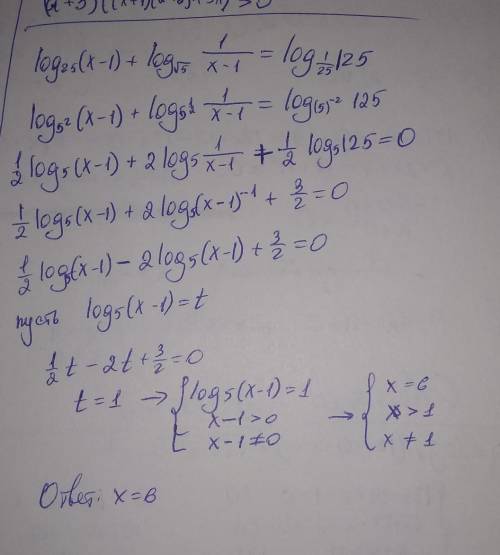 log₂₅(x-1) + log_√5 1/(x-1) = log_(1/25) 125
log_5²(x-1) + log_5^(1/2) 1/(x-1) = log_(5)^-2 125
1/2 log₅(x-1) + 2 log₅ 1/(x-1) + 1/2 log₅125 = 0
1/2 log₅(x-1) + 2 log₅(x-1)^-1 + 3/2 = 0
1/2 log₅(x-1) - 2 log₅(x-1) + 3/2 = 0
пусть log₅(x-1) = t
1/2 t - 2t + 3/2 = 0
t = 1 → { log₅(x-1) = 1 → { x = 6
x-1 > 0 x > 1
x-1 ≠ 0 x ≠ 1
Ответ: x = 6